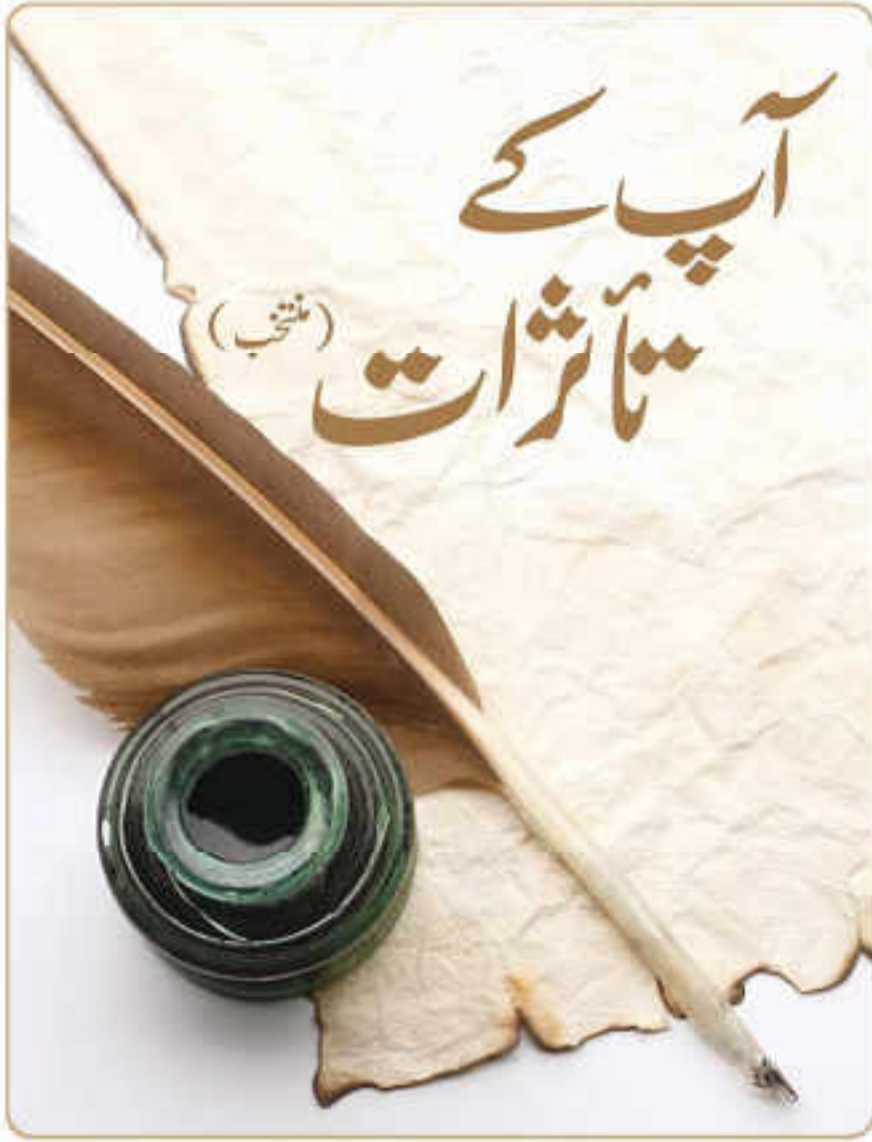 آپ کے
تأثرات (منتخب)